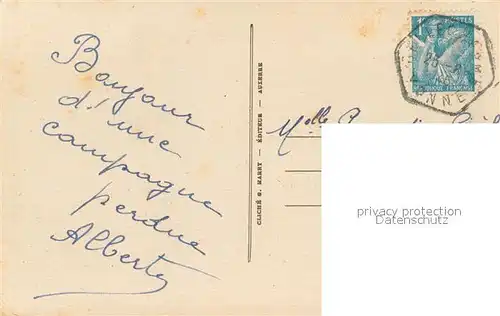 Bonjour
d'une
campagne
perdue
Alberte
CLICHÉ G. MARRY - ÉDITEUR - AUXERRE
1F POSTES
RÉPUBLIQUE FRANÇAISE
Melle
privacy protection
Datenschutz